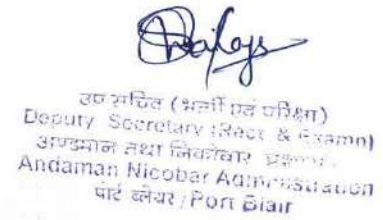 उप सचिव (भर्ती एवं परीक्षा)
Deputy Secretary (Rect. & Examn)
अण्डमान तथा निकोबार प्रशासन
Andaman Nicobar Administration
पोर्ट ब्लेयर / Port Blair